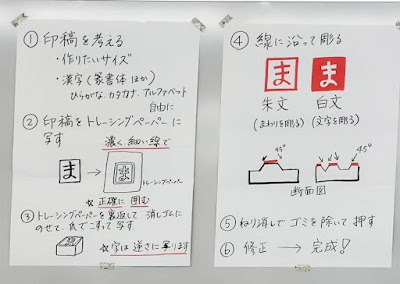 ① 印稿を考える
・作りたいサイズ
・漢字(篆書体 ほか)
ひらがな.カタカナ.アルファベット
自由に
② 印稿をトレーシングペーパーに
写す
濃く、細い線で
ま
ま
トレーシングペーパー
☆正確に囲む
③ トレーシングペーパーを裏返して 消しゴムに
のせて、爪でこすって写す.
☆字は逆さに写ります
④ 線に沿って彫る
ま ま
朱文 白文
(まわりを彫る) (文字を彫る)
45° 45°
断面図
⑤ ねり消しで ゴミを除いて 押す
⑥ 修正 → 完成!